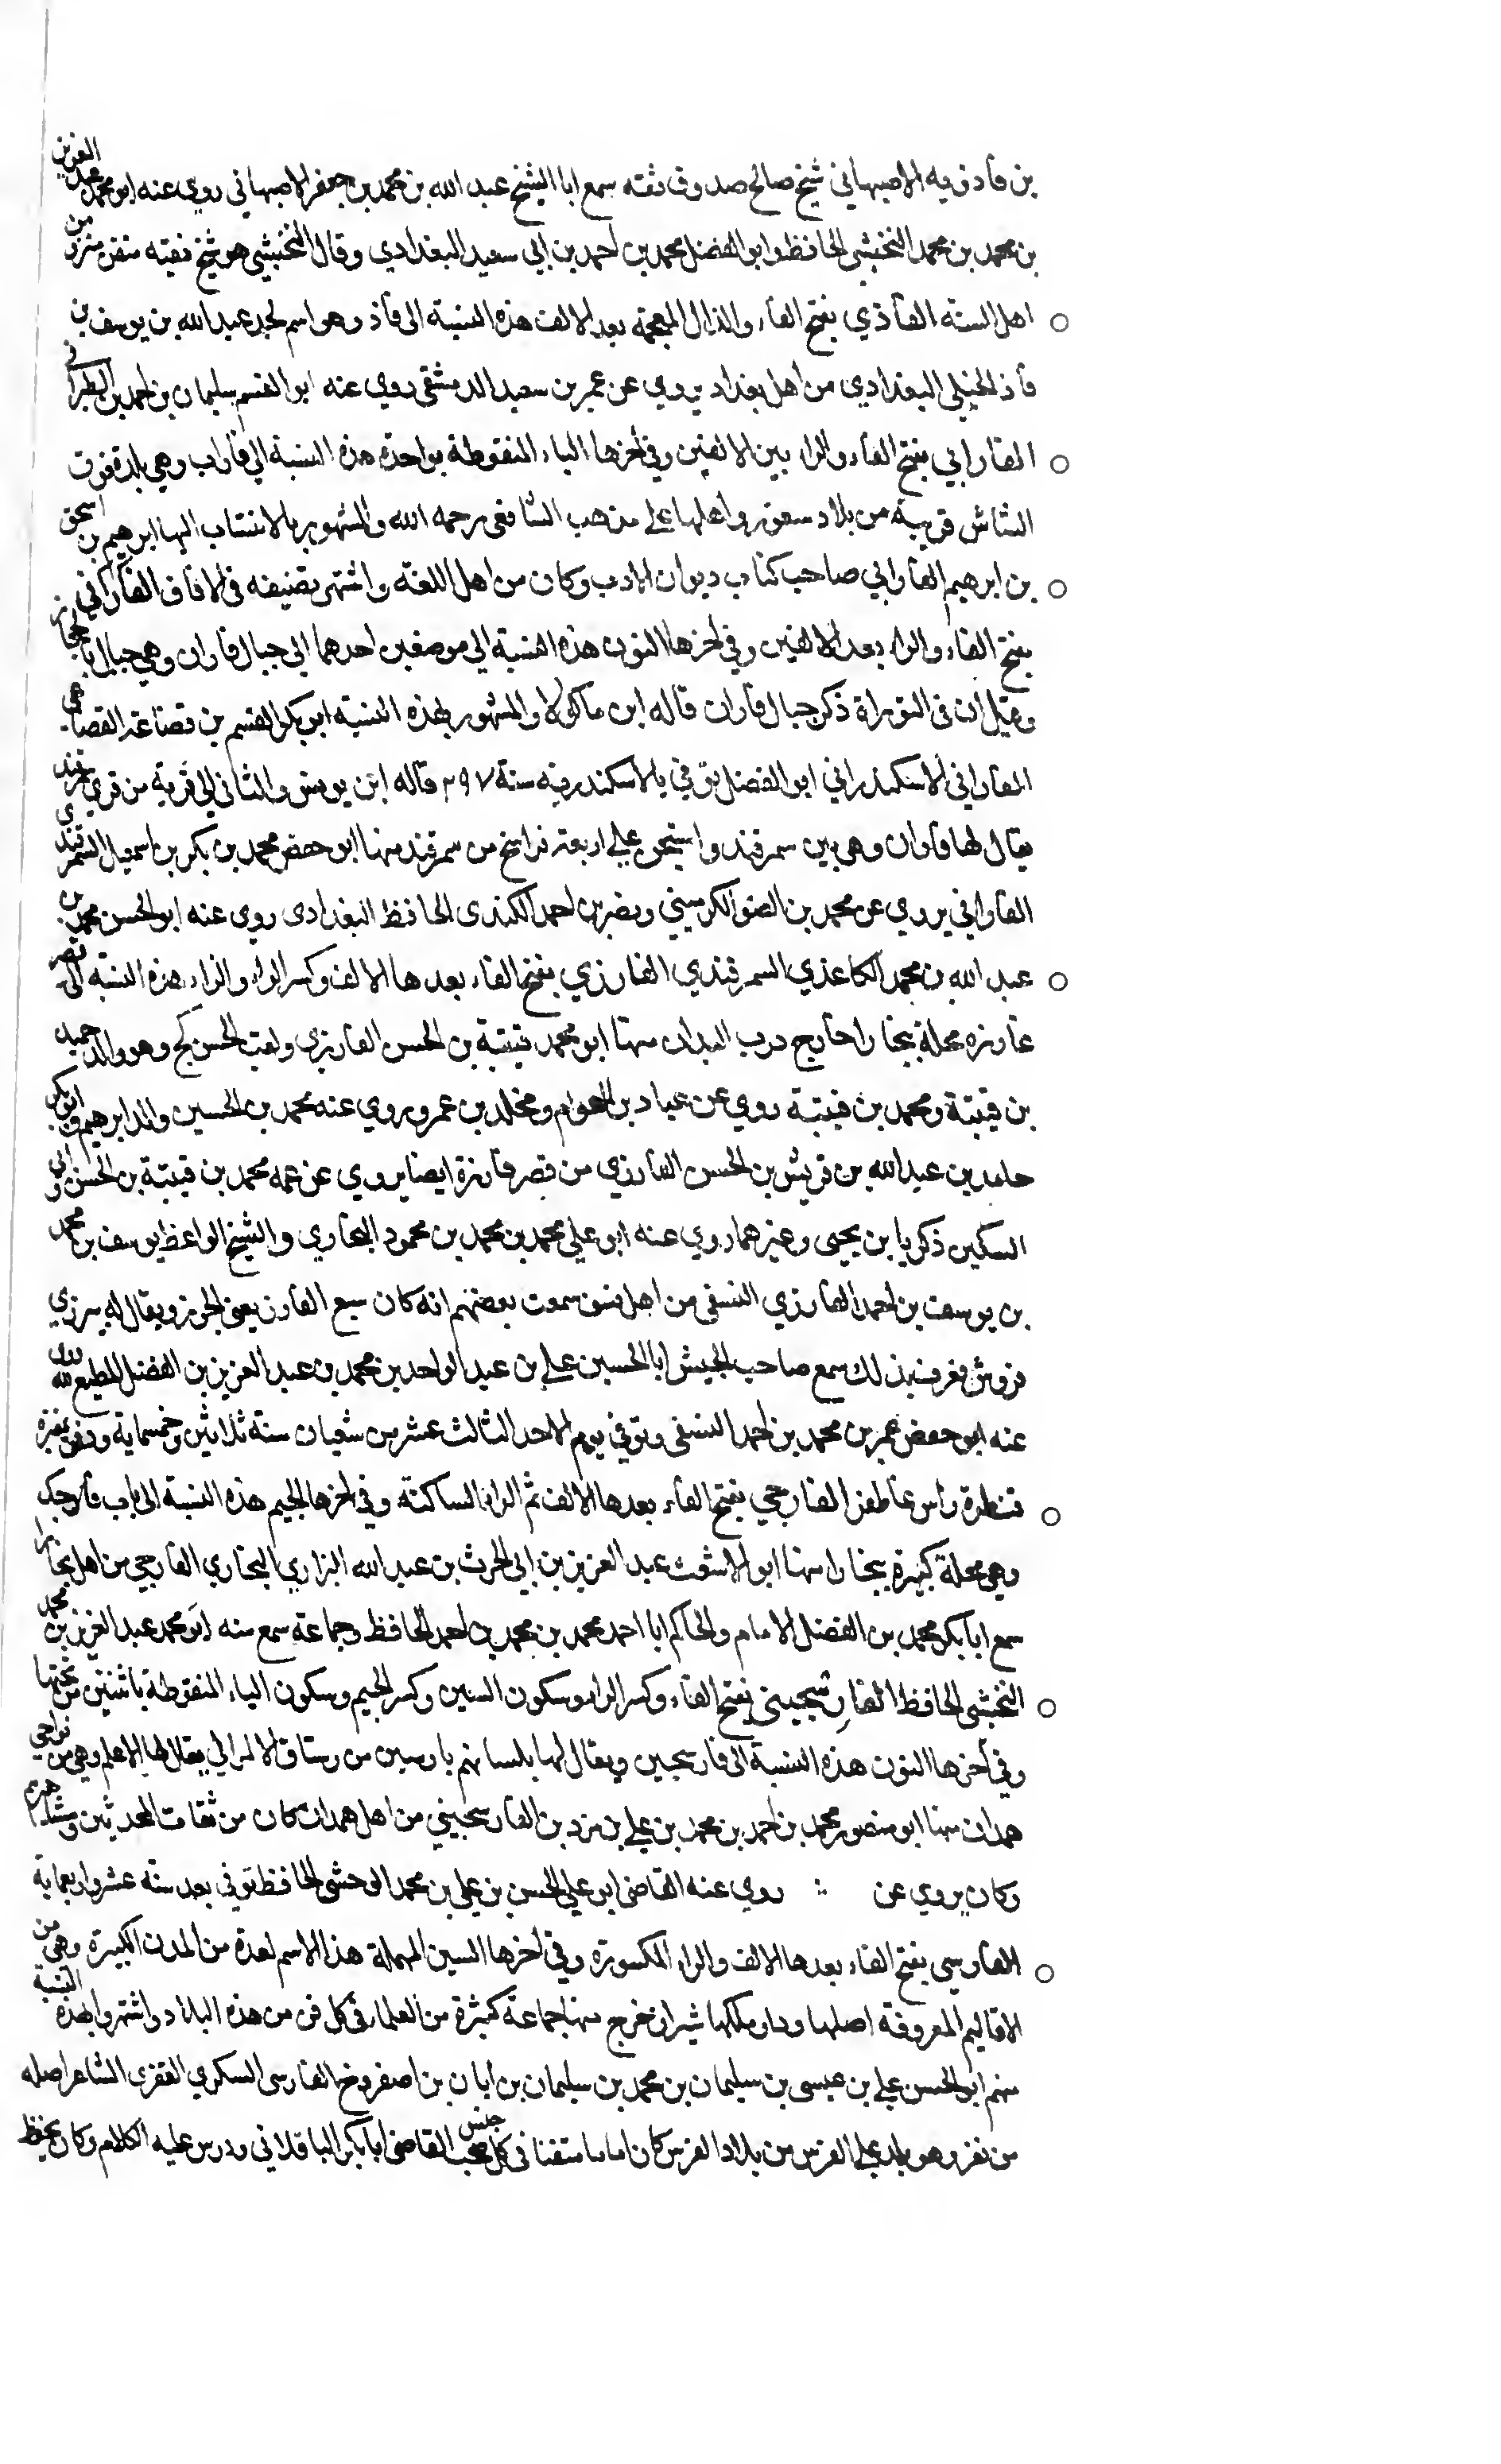 بن فاذويه الاصبهاني شيخ صالح صدوق ثقه سمع ابا الشيخ عبد الله بن محمد بن جعفر الاصبهاني روي عنه ابو محمد عبد العزيز
بن محمد بن محمد النخشبي الحافظ وابو الفضل محمد بن احمد بن ابي سعيد البغدادي وقال النخشبي هو شيخ فقيه متقن من
اهل السنة الفاذي بفتح الفاء والذال المعجمة بعد الالف هذه النسبة الى فاذ وهو اسم لجد عبد الله بن يوسف بن
فاذ الختلي البغدادي من اهل بغداد يروي عن عمر بن سعيد الدمشقي روي عنه ابو القسم سليمان بن احمد بن الطبراني
الفارابي بفتح الفاء والراء بين الالفين وفي اخرها الباء المنقوطة بواحدة هذه النسبة الى فاراب وهي بلدة فوق
الشاش قريبة من بلاد ساعون واهلها على مذهب الشافعي رحمه الله والمشهور بالانتساب اليها ابرهيم بن اسحق
بن ابرهيم الفارابي صاحب كتاب ديوان الادب وكان من اهل اللغة واشتهر تصنيفه في الافاق الفاراني
بفتح الفاء والراء بعد الالفين وفي اخرها النون هذه النسبة الي موضعين احدهما الى جبال فاران وهي جبال بالحجاز
وقيل ان في التوراة ذكر جبال فاران قاله ابن ماكولا والمشهور بهذه النسبة ابو بكر القسم بن قضاعة القضاعي
الفاراني الاسكندراني ابو الفضل توفي بالاسكندرية سنة ٢٩٧ قاله ابن يونس والثاني الى قرية من قرى سمرقند
يقال لها فاران وهي بين سمرقند واشتيخن على اربعة فراسخ من سمرقند منها ابو حفص محمد بن بكر بن اسمعيل السمرقندي
الفاراني يروي عن محمد بن الضوء الكرميني ونصر بن احمد الكندي الحافظ البغدادي روي عنه ابو الحسن محمد بن
عبد الله بن محمد الكاغذي السمرقندي الفارزي بفتح الفاء بعدها الالف وكسر الراء والزاء هذه النسبة الى قصر
فارزه محلة ببخارا خارج درب الميدان منها ابو محمد قتيبة بن الحسن الفارزي ولقب الحسن كج وهو والد حميد
بن قتيبة ومحمد بن قتيبة روي عن عباد بن العوام ومخلد بن عمر وروي عنه محمد بن الحسين والد ابرهيم وابو بكر
حامد بن عبد الله بن قريش بن الحسن الفارزي من قصر فارزة ايضا يروي عن عمه محمد بن قتيبة بن الحسن وابي
السكين ذكريا بن يحيى وغيرهما روي عنه ابو علي محمد بن محمد بن محمود البخاري والشيخ الواعظ يوسف بن محمد
بن يوسف بن احمد الفارزي النسفي من اهل نسف سمعت بعضهم انه كان يبيع الفارز يعني الخرز ويقال له بيرزي
فروش فعرف بذلك سمع صاحب الجيش ابا الحسين علي بن عبد الواحد بن محمد بن عبد العزيز بن الفضل المطيع لله روي
عنه ابو حفص عمر بن محمد بن احمد النسفي وتوفي يوم الاحد الثالث عشر من شعبان سنة ثلاثين وخمسماية ودفن بمقبرة
قنطرة راس غاطفر الفارجي بفتح الفاء بعدها الالف ثم الراء الساكنة وفي اخرها الجيم هذه النسبة الى باب فارجك
وهي محلة كبيرة ببخارا منها ابو الاشعث عبد العزيز بن ابي الحرث بن عبد الله البزاري البخاري الفارجي من اهل بخارا
سمع ابا بكر محمد بن الفضل الامام والحاكم ابا احمد محمد بن محمد بن احمد الحافظ وجماعة سمع منه ابو محمد عبد العزيز بن محمد
النخشبي الحافظ الفارسجيني بفتح الفاء وكسر الراء وسكون السين وكسر الجيم وسكون الياء المنقوطة باثنتين من تحتها
وفي اخرها النون هذه النسبة الى فارسجين ويقال لها بلسانهم بارسين من رستاق الالمر الى يقال لها الاعلم وهي من نواحي
همدان منها ابو منصور محمد بن احمد بن محمد بن علي بن مزدين الفارسجيني من اهل همدان كان من ثقات المحدثين ومشاهيرهم
وكان يروي عن ؞ روي عنه القاضي ابو علي الحسن بن علي بن محمد الوخشي الحافظ توفي بعد سنة عشر واربعماية
الفارسي بفتح الفاء بعدها الالف والراء المكسورة وفي اخرها السين المهملة هذا الاسم لعدة من المدن الكبيرة وهي من
الاقاليم المعروفة اصلها ودار ملكها شيراز خرج منها جماعة كثيرة من العلماء في كل فن من هذه البلاد واشتهروا بهذه النسبة
منهم ابو الحسن علي بن عيسى بن سليمان بن محمد بن سليمان بن ابان بن اصفروخ الفارسي السكري النفري الشاعر اصله
من نفر وهو بلد على النرس من بلاد الفرس كان اماما متقنا في كل جنس صحب القاضي ابا بكر الباقلاني ودرس عليه الكلام وكان يحفظ